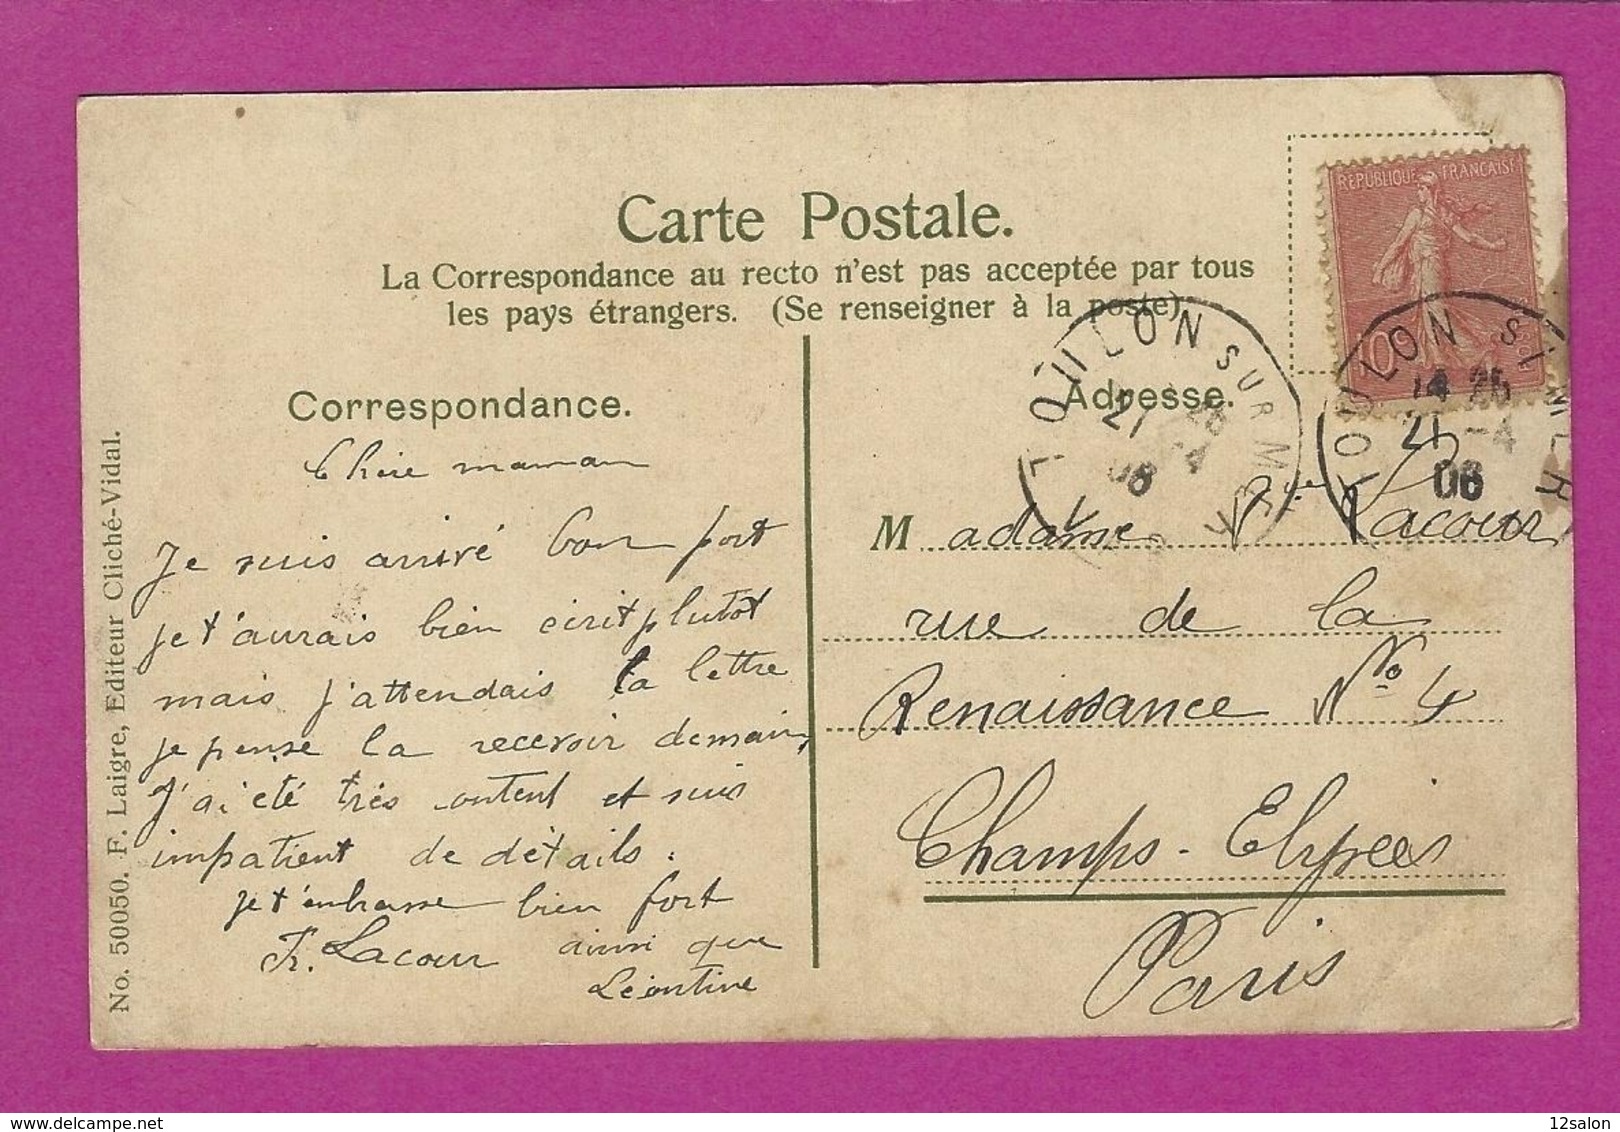 Carte Postale.
La Correspondance au recto n'est pas acceptée par tous
les pays étrangers. (Se renseigner à la poste)
REPUBLIQUE FRANÇAISE
10
TOULON SUR MER
21
08
VAR
TOULON S
14 25
21 -4
08
Correspondance.
Chère maman
Je suis arrivé bon port
je t'aurais bien écrit plutôt
mais j'attendais la lettre
je pense la recevoir demain,
J'ai été très content et suis
impatient de détails.
Je t'embrasse bien fort
Fr. Lacour ainsi que
Léontine
Adresse.
Madame Vve Lacour
rue de la
Renaissance No 4
Champs-Elysées
Paris
No. 50050. F. Laigre, Editeur Cliché-Vidal.
12salon